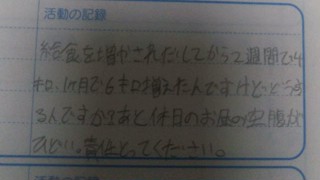 活動の記録
給食を増やされたりしてから2週間で4
キロ、1ヶ月で6キロ増えたんですけどどうす
るんですか?あと休日のお昼の空腹が
ひどい。責任とってください。
活動の記録